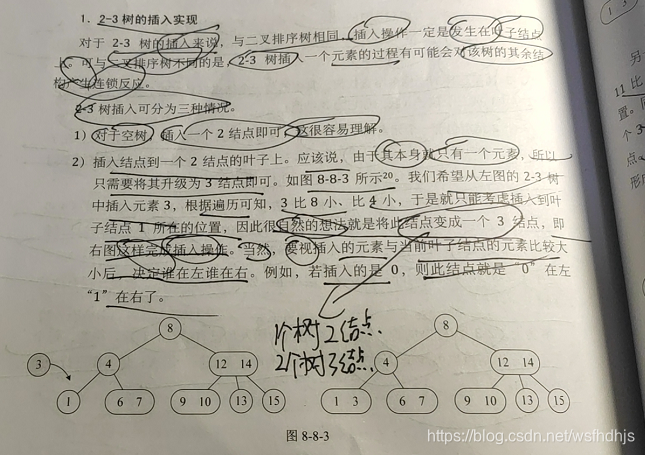 1. 2-3 树的插入实现
对于 2-3 树的插入来说，与二叉排序树相同，插入操作一定是发生在叶子结点
上。可与二叉排序树不同的是，2-3 树插入一个元素的过程有可能会对该树的其余结
构产生连锁反应。
2-3 树插入可分为三种情况。
1）对于空树，插入一个 2 结点即可，这很容易理解。
2）插入结点到一个 2 结点的叶子上。应该说，由于其本身就只有一个元素，所以
只需要将其升级为 3 结点即可。如图 8-8-3 所示20。我们希望从左图的 2-3 树
中插入元素 3，根据遍历可知，3 比 8 小、比 4 小，于是就只能考虑插入到叶
子结点 1 所在的位置，因此很自然的想法就是将此结点变成一个 3 结点，即
右图这样完成插入操作。当然，要视插入的元素与当前叶子结点的元素比较大
小后，决定谁在左谁在右。例如，若插入的是 0，则此结点就是“0”在左
“1”在右了。
1个树 2结点.
2个树 3结点.
8
3
4
12 14
1
6 7
9 10
13
15
8
4
12 14
1 3
6 7
9 10
13
15
图 8-8-3
另
11 比
置。
个 3
点。
形
https://blog.csdn.net/wsfhdhjs